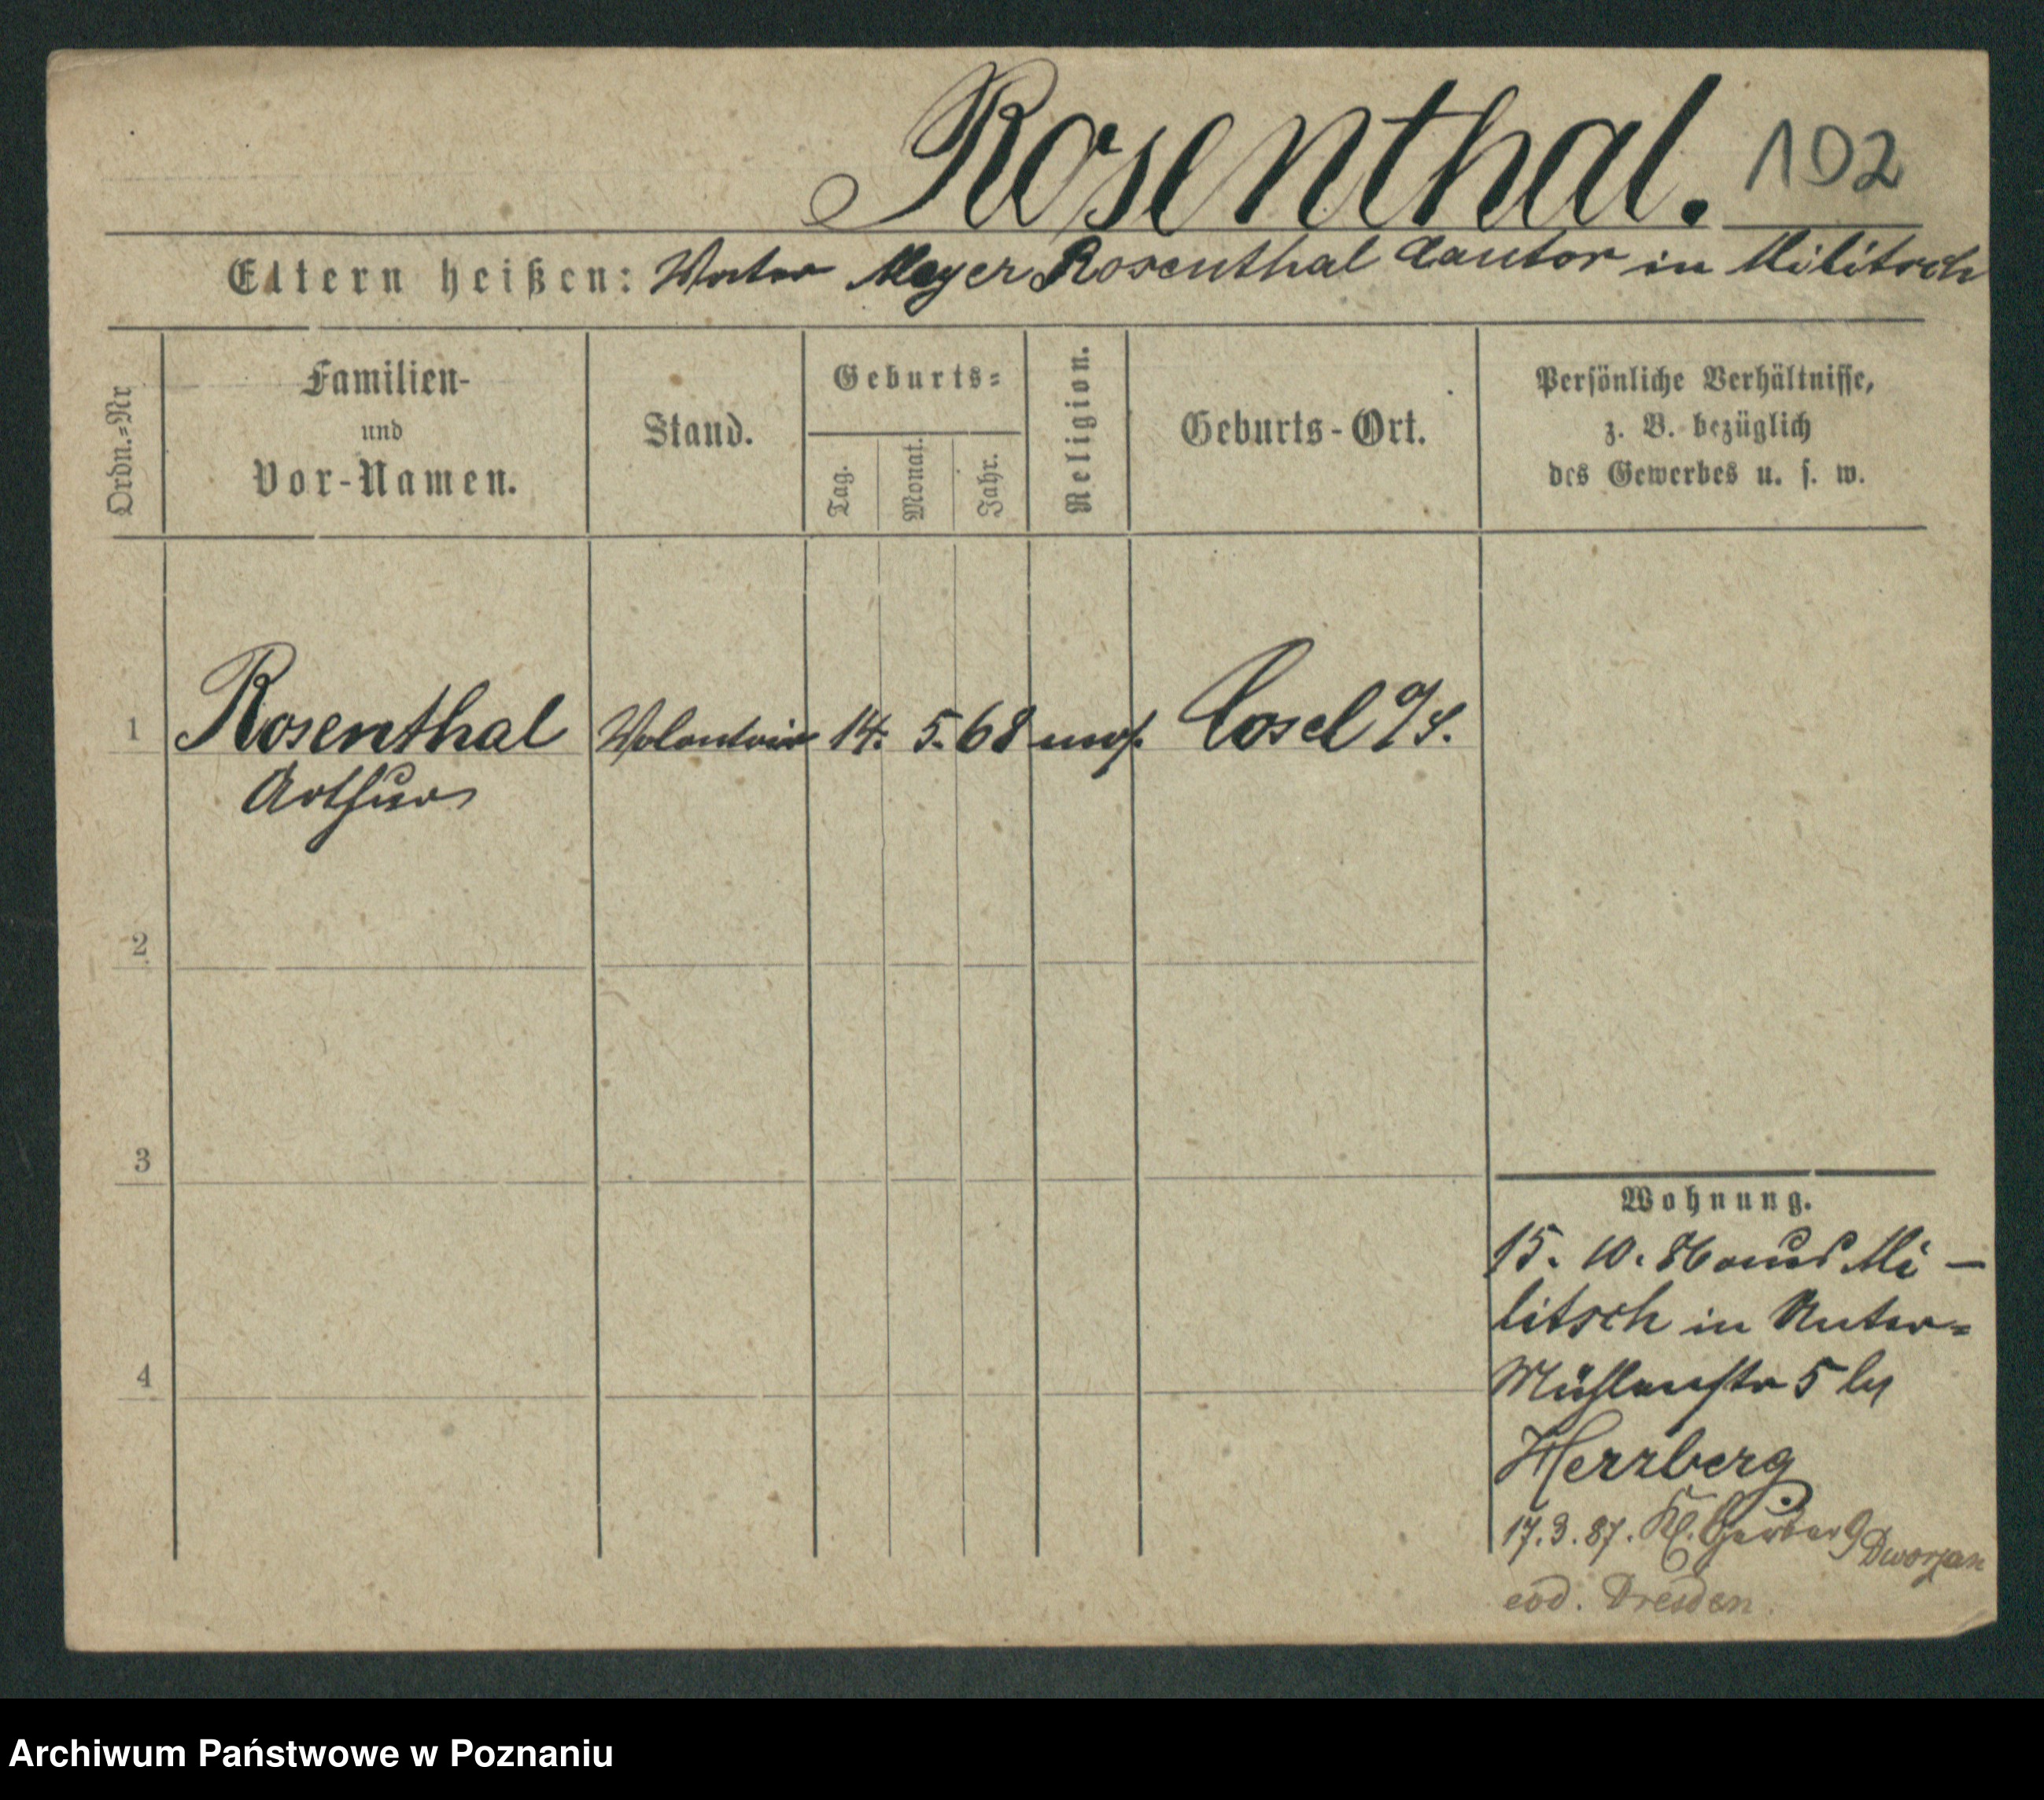 Rosenthal. 102
Eltern heißen: Vater Meyer Rosenthal Cantor in Militsch
Ordn.=Nr
Familien-
und
Vor-Namen.
Stand.
Geburts=
Tag.
Monat.
Jahr.
Religion.
Geburts-Ort.
Persönliche Verhältnisse,
z. B. bezüglich
des Gewerbes u. s. w.
1 Rosenthal Volontair 14. 5. 68 mos. Cosel O/S.
Arthur
2
3
4
Wohnung.
15. 10. 86 aus Mi-
litsch in Unter=
Mühlenstr 5 bei
Herzberg
17.3.87. Kl. Gerber 9 Dworzan
eod. Dresden.
Archiwum Państwowe w Poznaniu